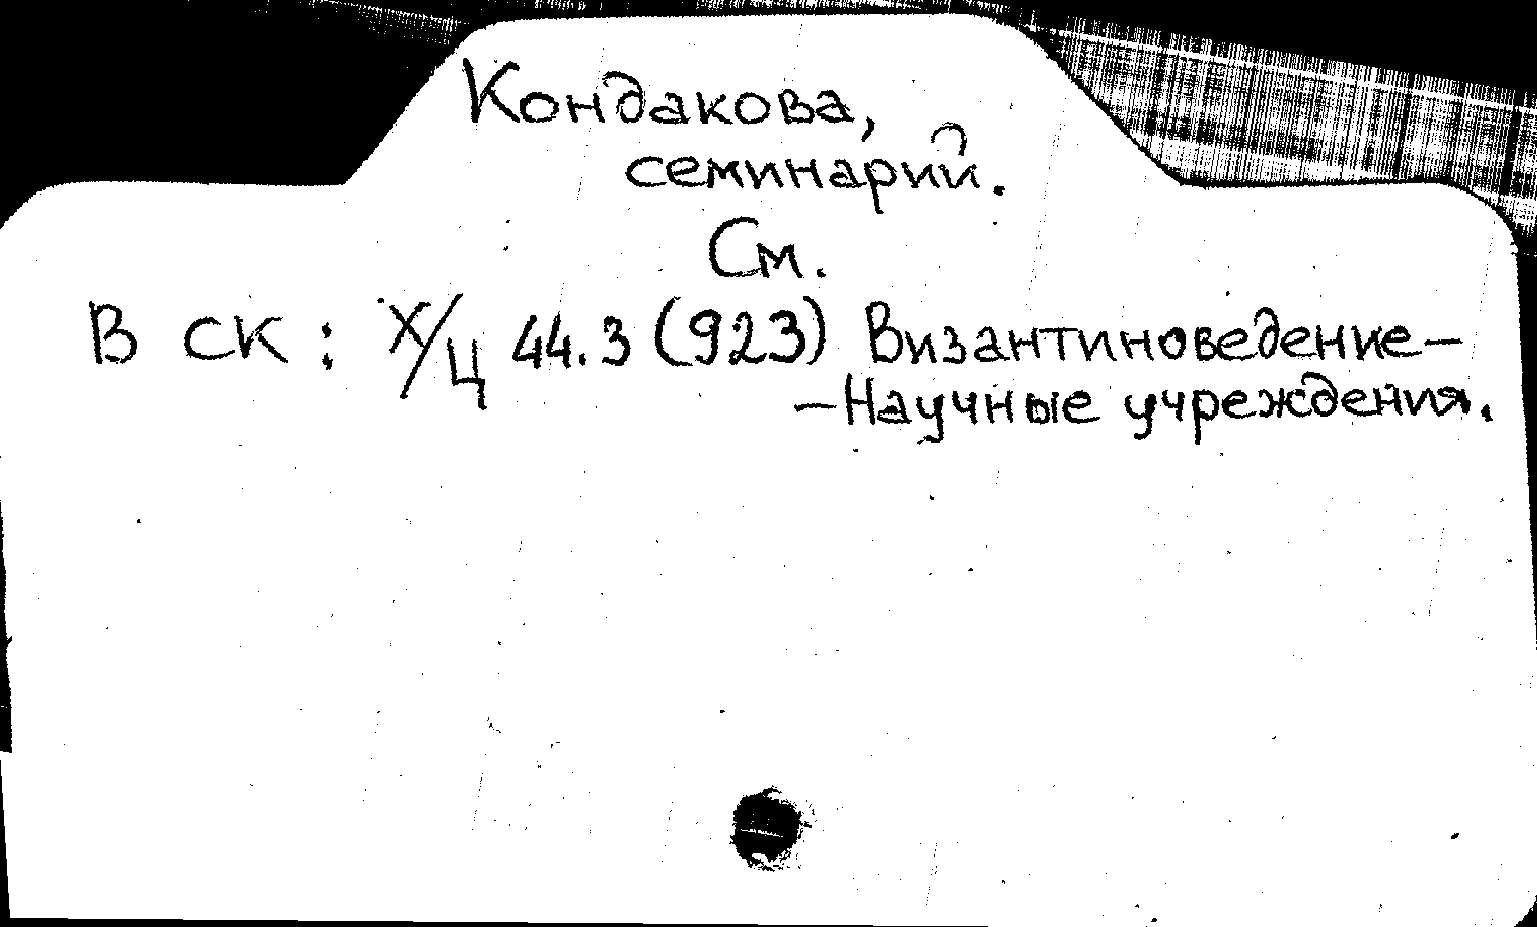 Кондакова,
семинарий.
См.
В СК: Х/Ц 44.3 (923) Византиноведение—
—Научные учреждения.